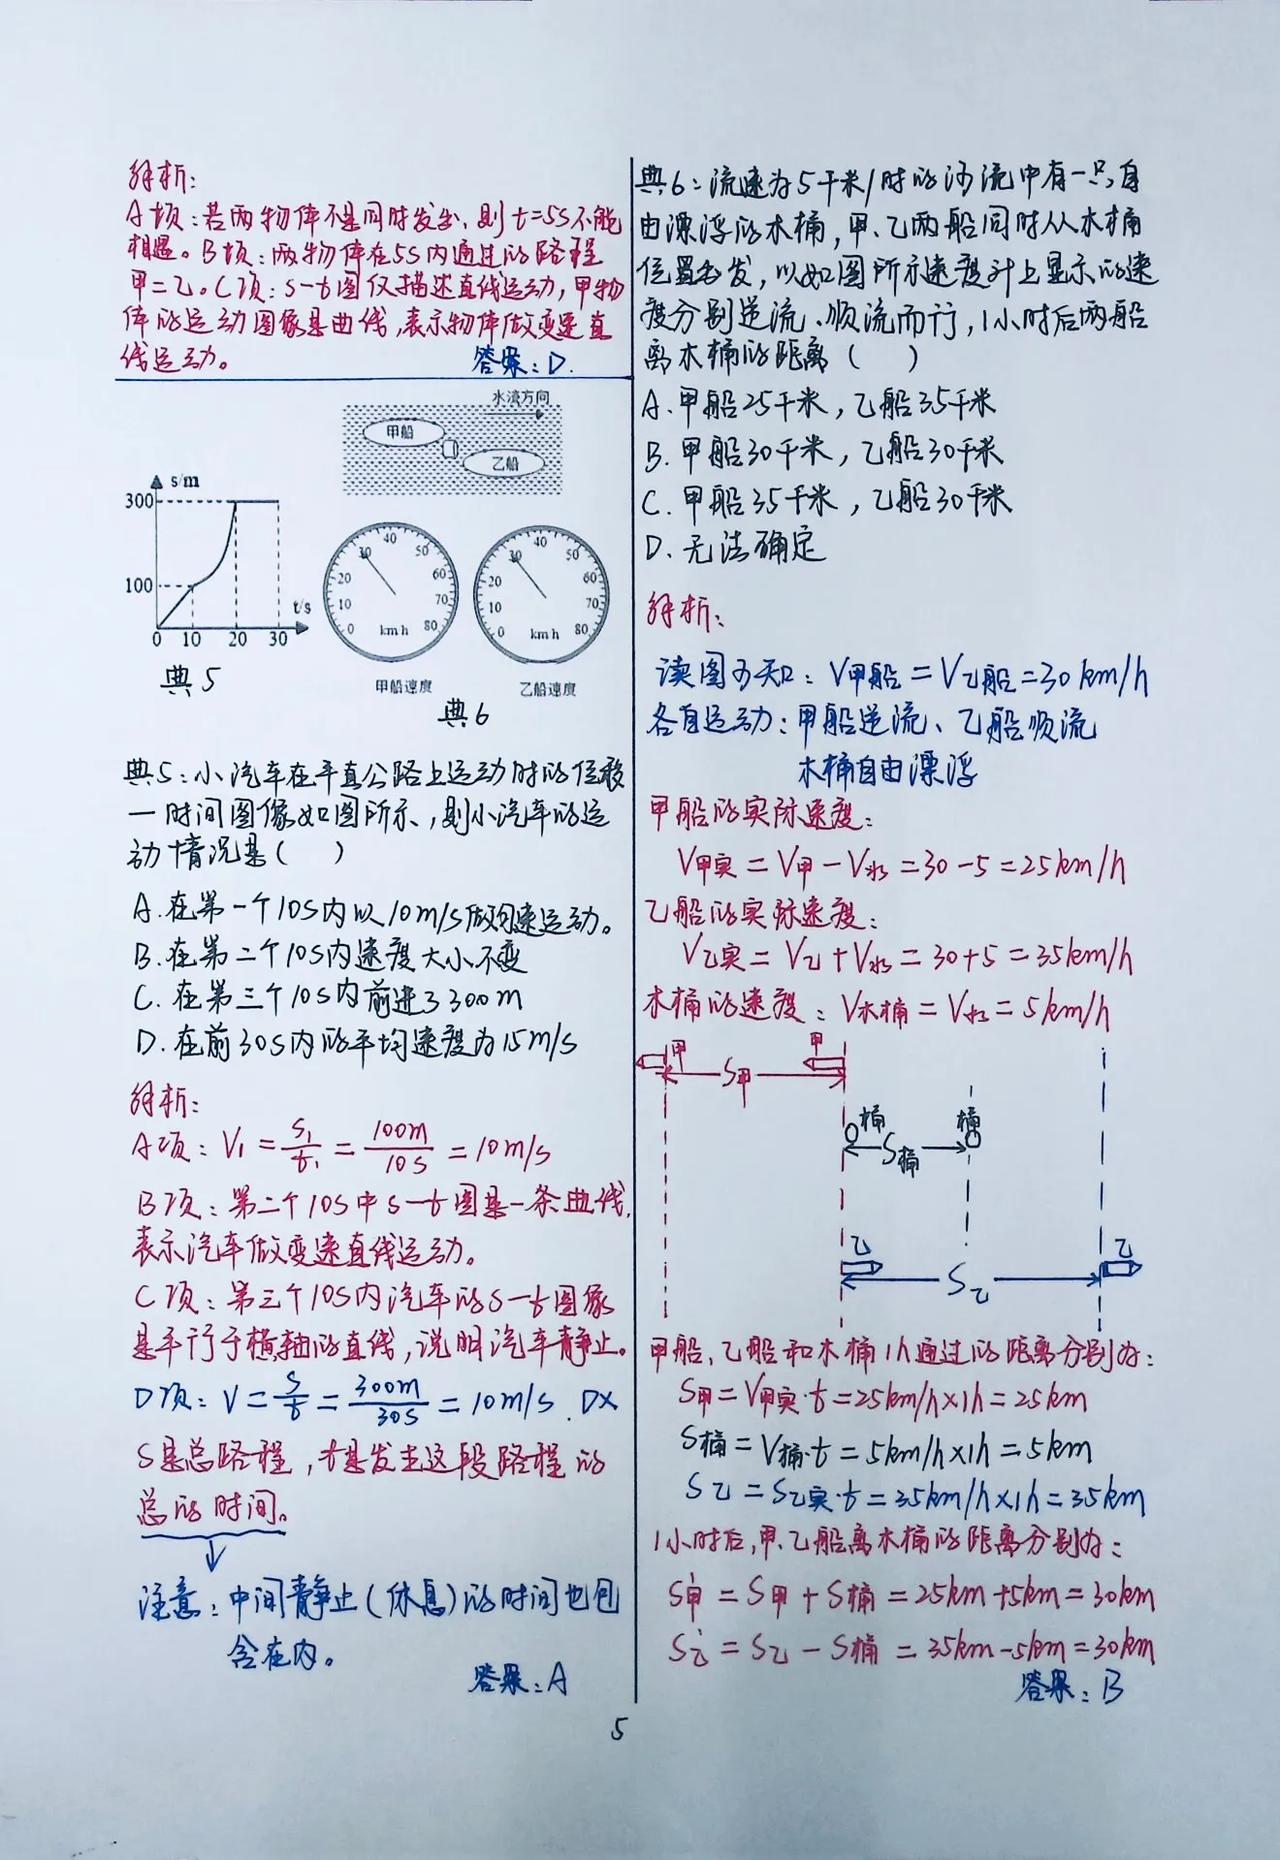 解析：
A项：若两物体不是同时发出，则t=5s不能
相遇。B项：两物体在5s内通过的路程
甲=乙。C项：s-t图仅描述直线运动，甲物
体的运动图像是曲线，表示物体做变速直
线运动。
答案：D.
s/m
300
100
0 10 20 30
t/s
典5
水流方向
甲船
乙船
0 10 20 30 40 50 60 70 80
km h
甲船速度
0 10 20 30 40 50 60 70 80
km h
乙船速度
典6
典5：小汽车在平直公路上运动时的位移
一时间图像如图所示，则小汽车的运
动情况是（ ）
A.在第一个10s内以10m/s做匀速运动。
B.在第二个10s内速度大小不变
C.在第三个10s内前进了300m
D.在前30s内的平均速度为15m/s
解析：
A项：V₁=S₁/t₁=100m/10s=10m/s
B项：第二个10s中s-t图是一条曲线，
表示汽车做变速直线运动。
C项：第三个10s内汽车的s-t图像
是平行于横轴的直线，说明汽车静止。
D项：V=S/t=300m/30s=10m/s.D×
S是总路程，t是发生这段路程的
总的时间。
注意：中间静止（休息）的时间也包
含在内。
答案：A
典6：流速为5千米/时的河流中有一只自
由漂浮的木桶，甲、乙两船同时从木桶
位置出发，以如图所示速度计上显示的速
度分别逆流、顺流而行，1小时后两船
离木桶的距离（ ）
A.甲船25千米，乙船35千米
B.甲船30千米，乙船30千米
C.甲船35千米，乙船30千米
D.无法确定
解析：
读图可知：V甲船=V乙船=30km/h
各自运动：甲船逆流、乙船顺流
木桶自由漂浮
甲船的实际速度：
V甲实=V甲-V水=30-5=25km/h
乙船的实际速度：
V乙实=V乙+V水=30+5=35km/h
木桶的速度：V木桶=V水=5km/h
甲
S甲
甲
桶
S桶
桶
乙
S乙
乙
甲船、乙船和木桶1h通过的距离分别为：
S甲=V甲实·t=25km/h×1h=25km
S桶=V桶·t=5km/h×1h=5km
S乙=S乙实·t=35km/h×1h=35km
1小时后，甲、乙船离木桶的距离分别为：
S甲'=S甲+S桶=25km+5km=30km
S乙'=S乙-S桶=35km-5km=30km
答案：B
5